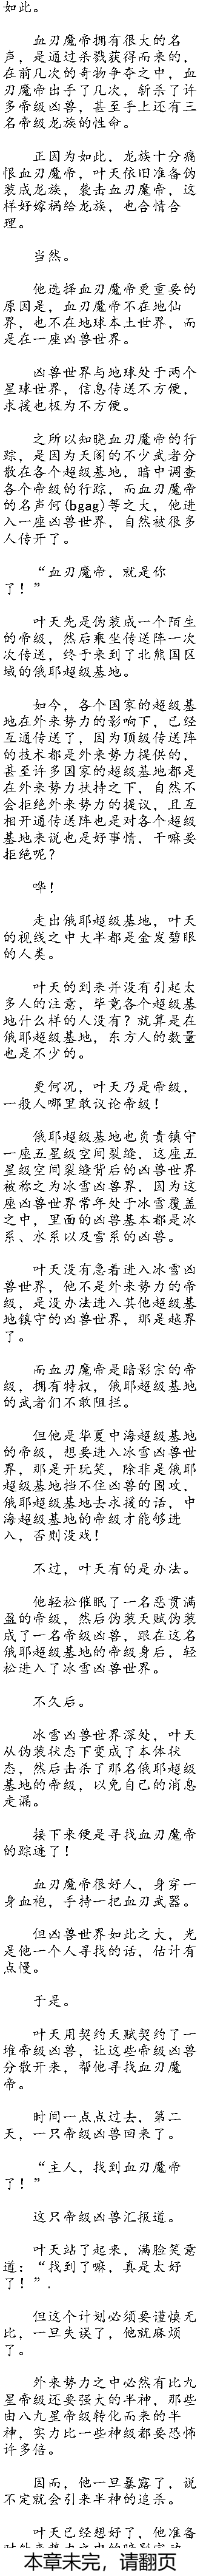 如此。
血刃魔帝拥有很大的名
声，是通过杀戮获得而来的，
在前几次的奇物争夺之中，血
刃魔帝出手了几次，斩杀了许
多帝级凶兽，甚至手上还有三
名帝级龙族的性命。
正因为如此，龙族十分痛
恨血刃魔帝，叶天依旧准备伪
装成龙族，袭击血刃魔帝，这
样好嫁祸给龙族，也合情合
理。
当然。
他选择血刃魔帝更重要的
原因是，血刃魔帝不在地仙
界，也不在地球本土世界，而
是在一座凶兽世界。
凶兽世界与地球处于两个
星球世界，信息传送不方便，
求援也极为不方便。
之所以知晓血刃魔帝的行
踪，是因为天阁的不少武者分
散在各个超级基地，暗中调查
各个帝级的行踪，而血刃魔帝
的名声何(bgag)等之大，他进
入一座凶兽世界，自然被很多
人传开了。
“血刃魔帝，就是你
了！”
叶天先是伪装成一个陌生
的帝级，然后乘坐传送阵一次
次传送，终于来到了北熊国区
域的俄耶超级基地。
如今，各个国家的超级基
地在外来势力的影响下，已经
互通传送了，因为顶级传送阵
的技术都是外来势力提供的，
甚至许多国家的超级基地都是
在外来势力扶持之下，自然不
会拒绝外来势力的提议，且互
相开通传送阵也是对各个超级
基地来说也是好事情，干嘛要
拒绝呢？
哗！
走出俄耶超级基地，叶天
的视线之中大半都是金发碧眼
的人类。
叶天的到来并没有引起太
多人的注意，毕竟各个超级基
地什么样的人没有？就算是在
俄耶超级基地，东方人的数量
也是不少的。
更何况，叶天乃是帝级，
一般人哪里敢议论帝级！
俄耶超级基地也负责镇守
一座五星级空间裂缝，这座五
星级空间裂缝背后的凶兽世界
被称之为冰雪凶兽界，因为这
座凶兽世界常年处于冰雪覆盖
之中，里面的凶兽基本都是冰
系、水系以及雪系的凶兽。
叶天没有急着进入冰雪凶
兽世界，他不是外来势力的帝
级，是没办法进入其他超级基
地镇守的凶兽世界，那是越界
了。
而血刃魔帝是暗影宗的帝
级，拥有特权，俄耶超级基地
的武者们不敢阻拦。
但他是华夏中海超级基地
的帝级，想要进入冰雪凶兽世
界，那是开玩笑，除非是俄耶
超级基地挡不住凶兽的围攻，
俄耶超级基地去求援的话，中
海超级基地的帝级才能够进
入，否则没戏！
不过，叶天有的是办法。
他轻松催眠了一名恶贯满
盈的帝级，然后伪装天赋伪装
成了一名帝级凶兽，跟在这名
俄耶超级基地的帝级身后，轻
松进入了冰雪凶兽世界。
不久后。
冰雪凶兽世界深处，叶天
从伪装状态下变成了本体状
态，然后击杀了那名俄耶超级
基地的帝级，以免自己的消息
走漏。
接下来便是寻找血刃魔帝
的踪迹了！
血刃魔帝很好人，身穿一
身血袍，手持一把血刃武器。
但凶兽世界如此之大，光
是他一个人寻找的话，估计有
点慢。
于是。
叶天用契约天赋契约了一
堆帝级凶兽，让这些帝级凶兽
分散开来，帮他寻找血刃魔
帝。
时间一点点过去，第二
天，一只帝级凶兽回来了。
“主人，找到血刃魔帝
了！”
这只帝级凶兽汇报道。
叶天站了起来，满脸笑意
道：“找到了嘛，真是太好
了！”.
但这个计划必须要谨慎无
比，一旦失误了，他就麻烦
了。
外来势力之中必然有比九
星帝级还要强大的半神，那些
由八九星帝级转化而来的半
神，实力比一些神级都要恐怖
许多倍。
因而，他一旦暴露了，说
不定就会引来半神的追杀。
叶天已经想好了，他准备
本章未完，请翻页